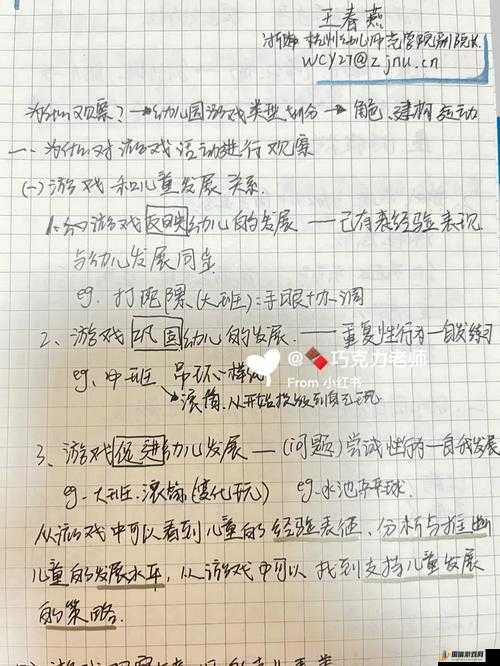 王春燕
浙师 杭州幼儿师范学院副院长
WCY27@zjnu.cn
为什么观察？→幼儿园游戏类型划分→角色、建构 运动
一、为什么对游戏活动进行观察
(一)游戏和儿童发展关系.
1、幼游戏反映幼儿的发展 ——已有表经验表现
与幼儿发展同步
eg. 打陀螺(大班)：手眼协调
2、游戏巩固幼儿的发展. ——重复性行为—自发练习
@🍫巧克力老师
From 小红书
eg、中班 吊环
滚筒、从开始
3、游戏促进幼儿发展——(问题)尝试性行为—自我发展
eg.大班.滚筒(变化玩) eg.水池
从游戏中可以看到儿童的经验表征、分析与推断
儿童的发展水平，从游戏中可以找到支持儿童发展
的策略.